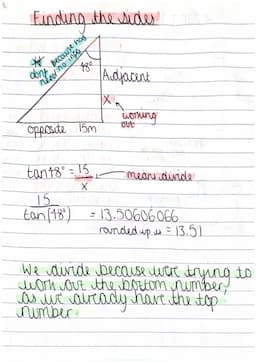 Finding the sides
48°
Adjacent
x
working out
opposite 15m
tan48° = 15
x
means divide
15
tan(48°) = 13.50606066
rounded up is = 13.51
We divide because we're trying to
work out the bottom number,
as we already have the top
number.